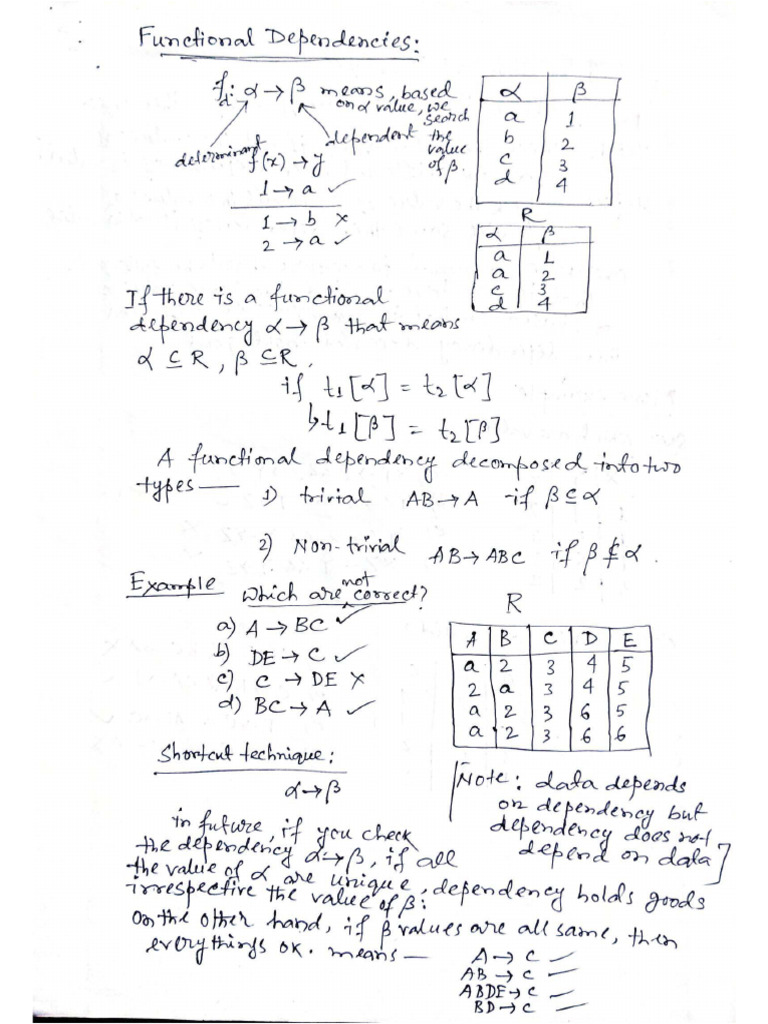 Functional Dependencies:
f: α → β means, based
d
on α value, we
search
the
value
of β.
determinant
dependent
f(x) → y
1 → a ✓
1 → b ×
2 → a ✓
α β
a 1
b 2
c 3
d 4
R
α β
a 1
a 2
c 3
d 4
If there is a functional
dependency α → β that means
α ⊆ R, β ⊆ R.
if t₁[α] = t₂[α]
↳ t₁[β] = t₂[β]
A functional dependency decomposed into two
types —
1) trivial AB → A if β ⊆ α
2) Non-trivial AB → ABC if β ⊈ α.
Example Which are not correct?
a) A → BC ✓
b) DE → C ✓
c) C → DE ×
d) BC → A ✓
R
A B C D E
a 2 3 4 5
2 a 3 4 5
a 2 3 6 5
a 2 3 6 6
Shortcut technique:
α → β
Note: data depends
on dependency but
dependency does not
depend on data]
in future, if you check
the dependency α → β, if all
the value of α are unique, dependency holds goods
irrespective the value of β:
On the other hand, if β values are all same, then
everythings ok. means —
A → C ✓
AB → C ✓
ABDE → C ✓
BD → C ✓